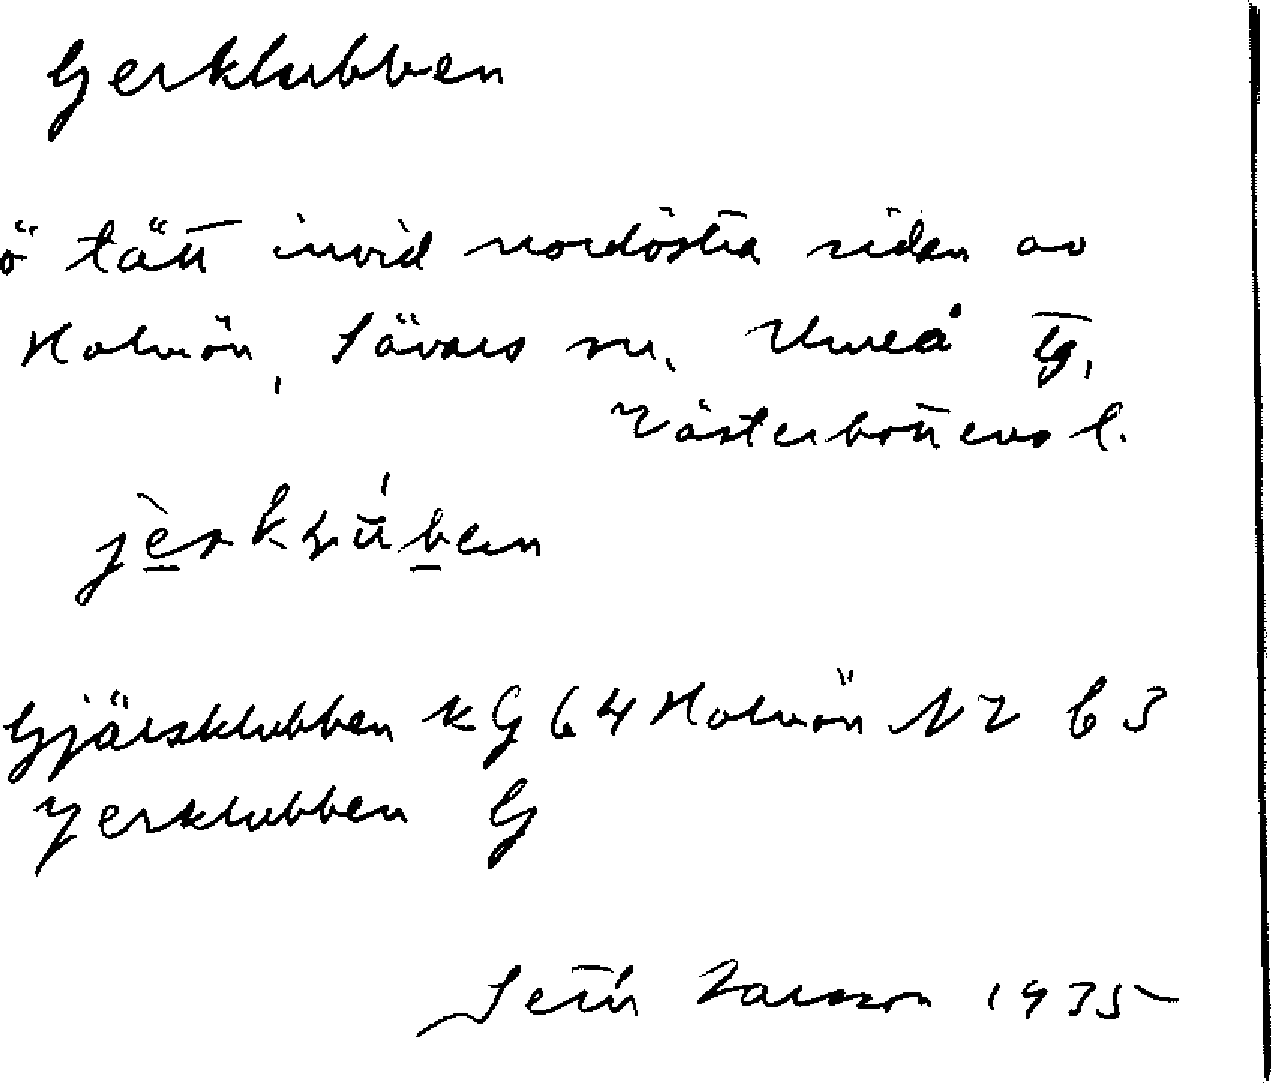 Gerklubben
ö tätt invid nordöstra sidan av
Holmön, Sävars sn, Umeå tg,
Västerbottens l.
Gjärsklubben KG 64 Holmön NV b 3
Yerklubben G
Setúr Larsson 1935